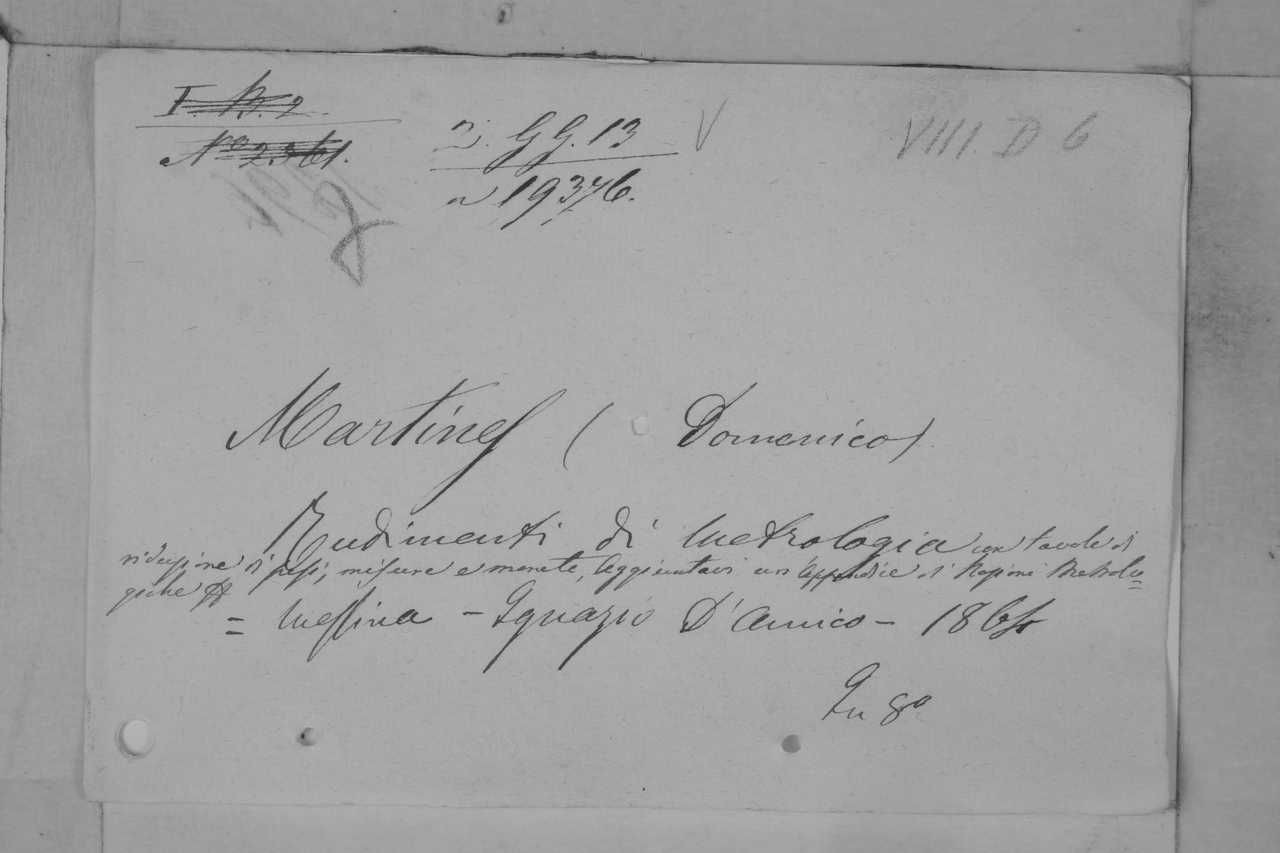 I. B. 2
Nº 2361.
2. GG. 13 V
n 19376.
VIII. D 6
Martines (Domenico)
Rudimenti di Metrologia con tavole di
riduzione di pesi, misure e monete, aggiuntavi un'Appendice di Ragioni Metrolo=
giche
= Messina - Ignazio D'Amico - 186
In 8º